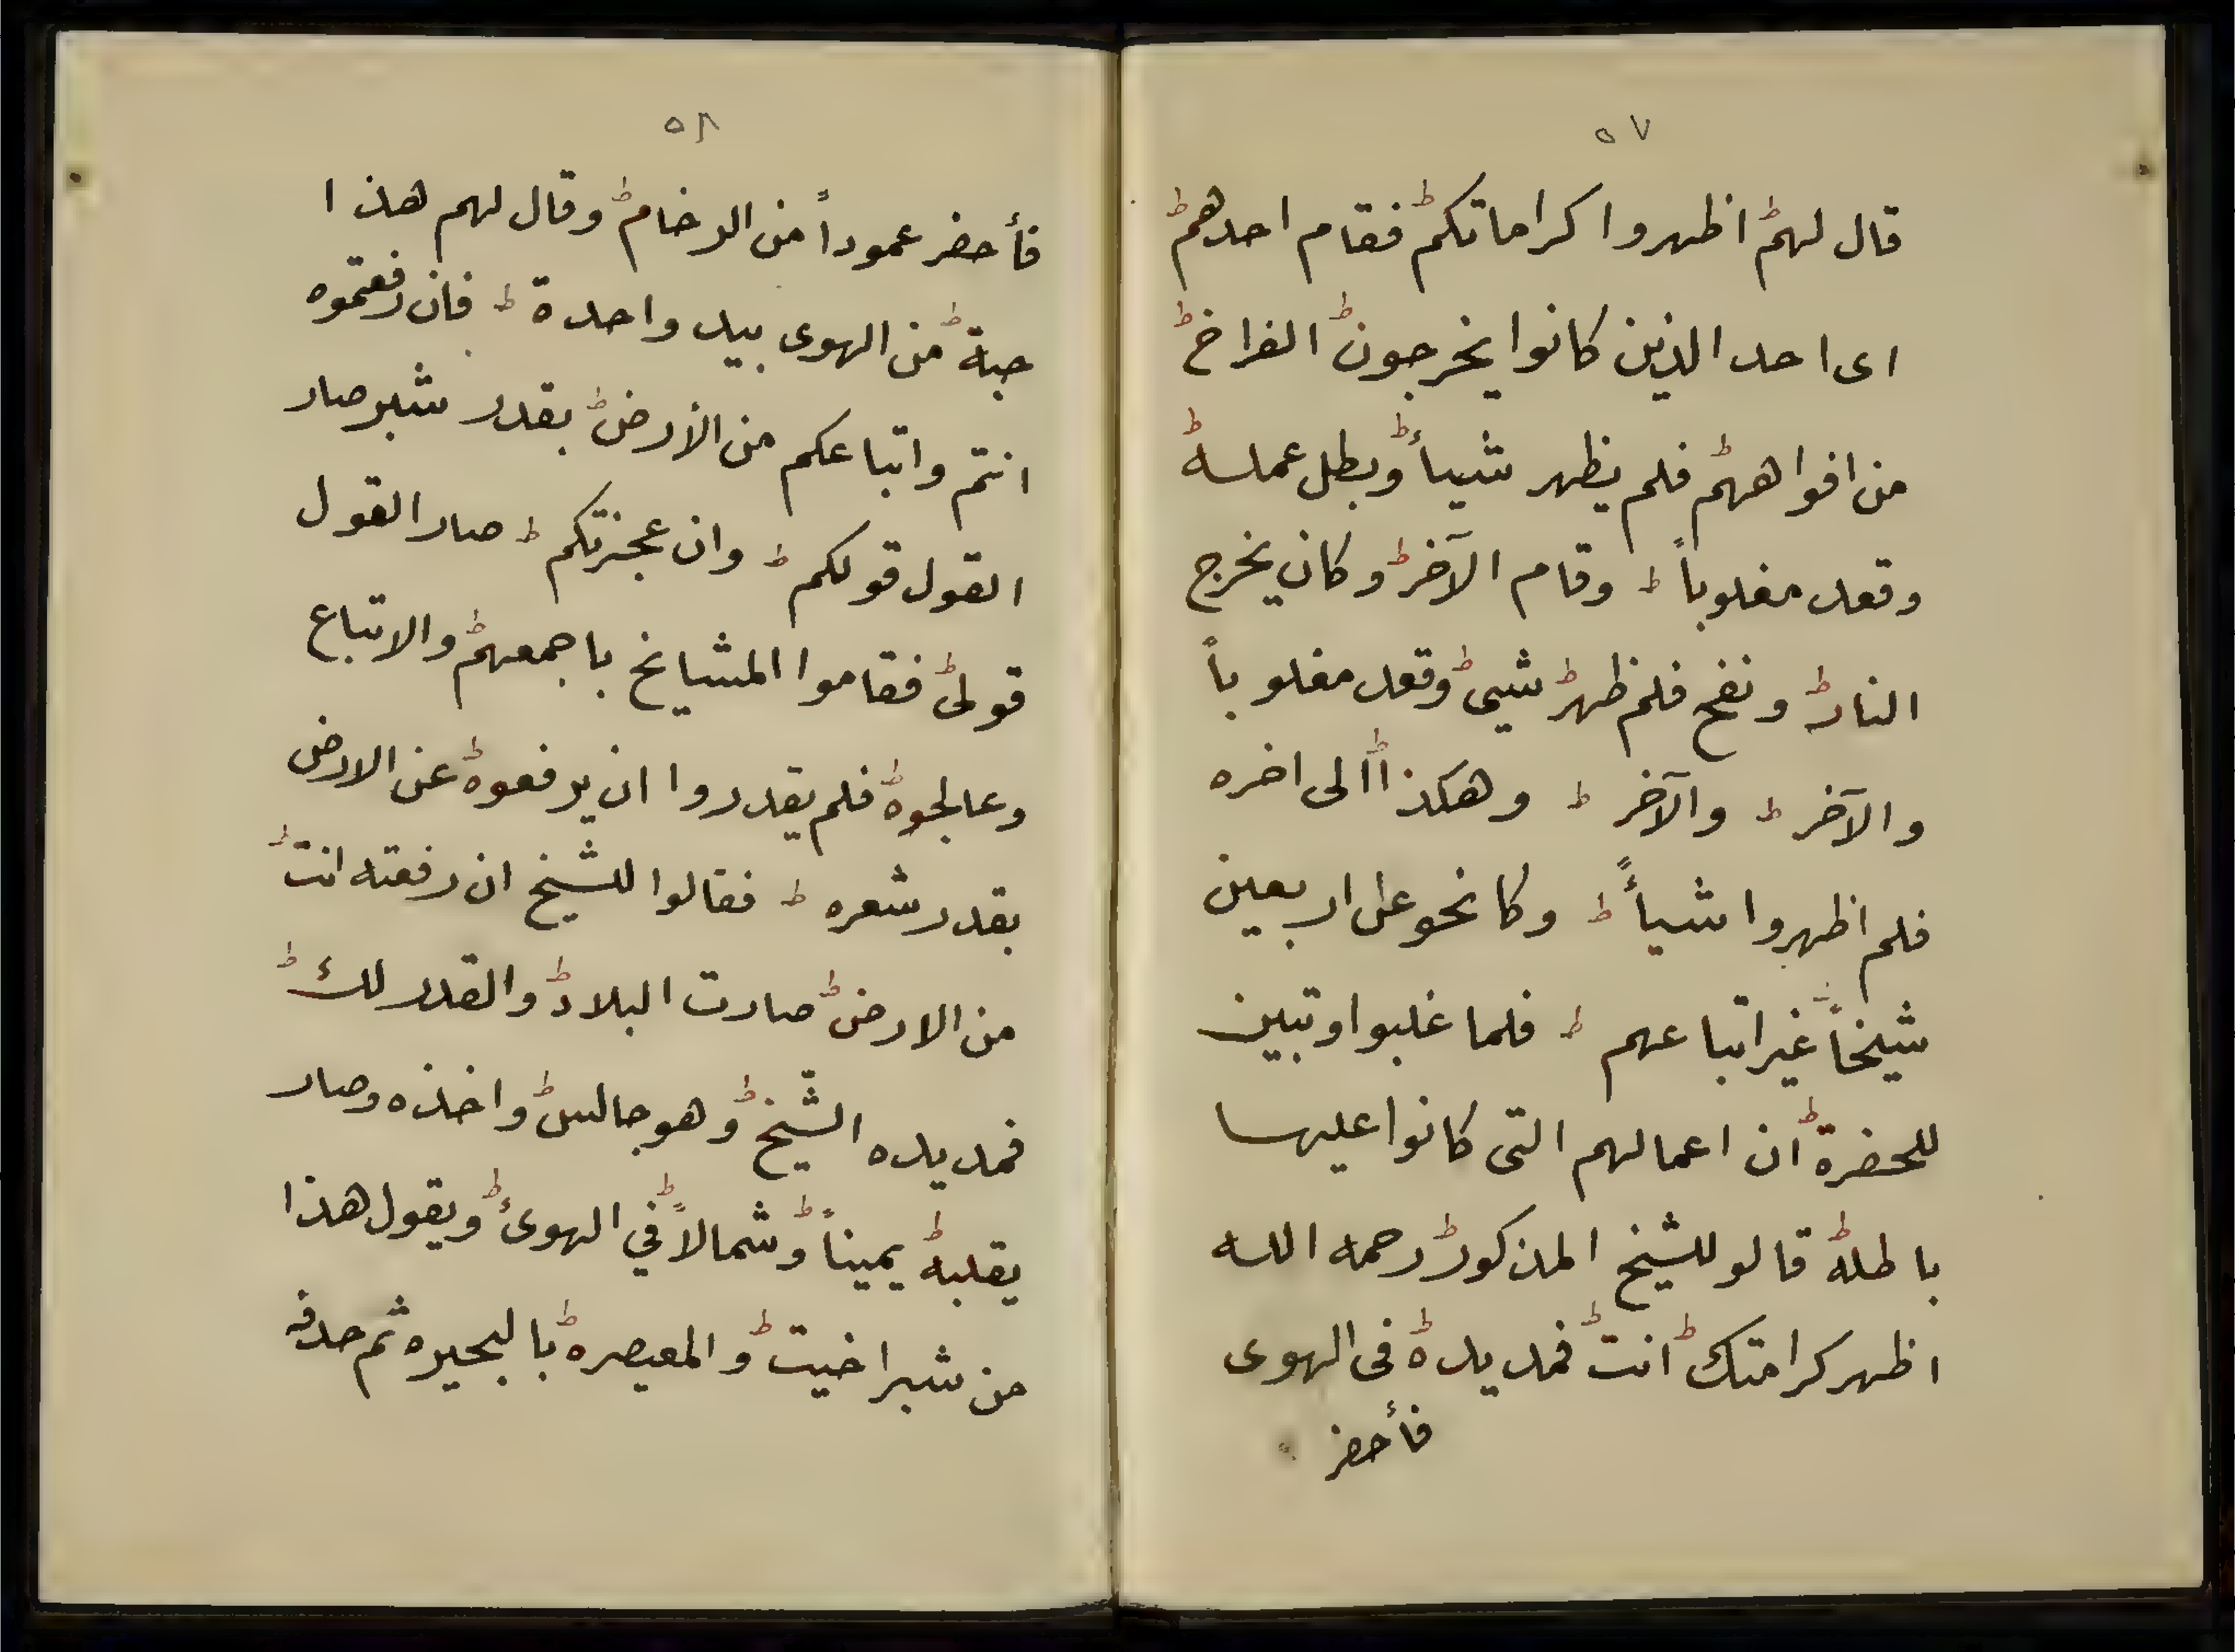 ٥٧
قال لهم اظهروا كراماتكم فقام احدهم
اى احد الذين كانوا يخرجون الفراخ
من افواههم فلم يظهر شيأ وبطل عمله
وقعد مغلوباً وقام الآخر وكان يخرج
النار ونفخ فلم ظهر شيى وقعد مغلوباً
والآخر والآخر وهكذا الى اخره
فلم اظهروا شيأً وكا نحو على اربعين
شيخاً غير اتباعهم فلما غلبوا وتبين
للحضرة ان اعمالهم التى كانوا عليها
باطله قالو للشيخ المذكور رحمه الله
اظهر كرامتك انت فمد يده فى الهوى
فأحضر
٥٨
فأحضر عموداً من الرخام وقال لهم هذا
جبة من الهوى بيد واحدة فان رفعتموه
انتم واتباعكم من الأرض بقدر شبر صار
القول قولكم وان عجزتكم صار القول
قولى فقاموا المشايخ باجمعهم والاتباع
وعالجوه فلم يقدروا ان يرفعوه عن الارض
بقدر شعره فقالوا للشيخ ان رفعته انت
من الارض صارت البلاد والقدر لك
فمد يده الشّيخ وهو جالس واخذه وصار
يقلبه يميناً وشمالاً في الهوىً ويقول هذا
من شبراخيت والمعيصره بالبحيره ثم حدفه